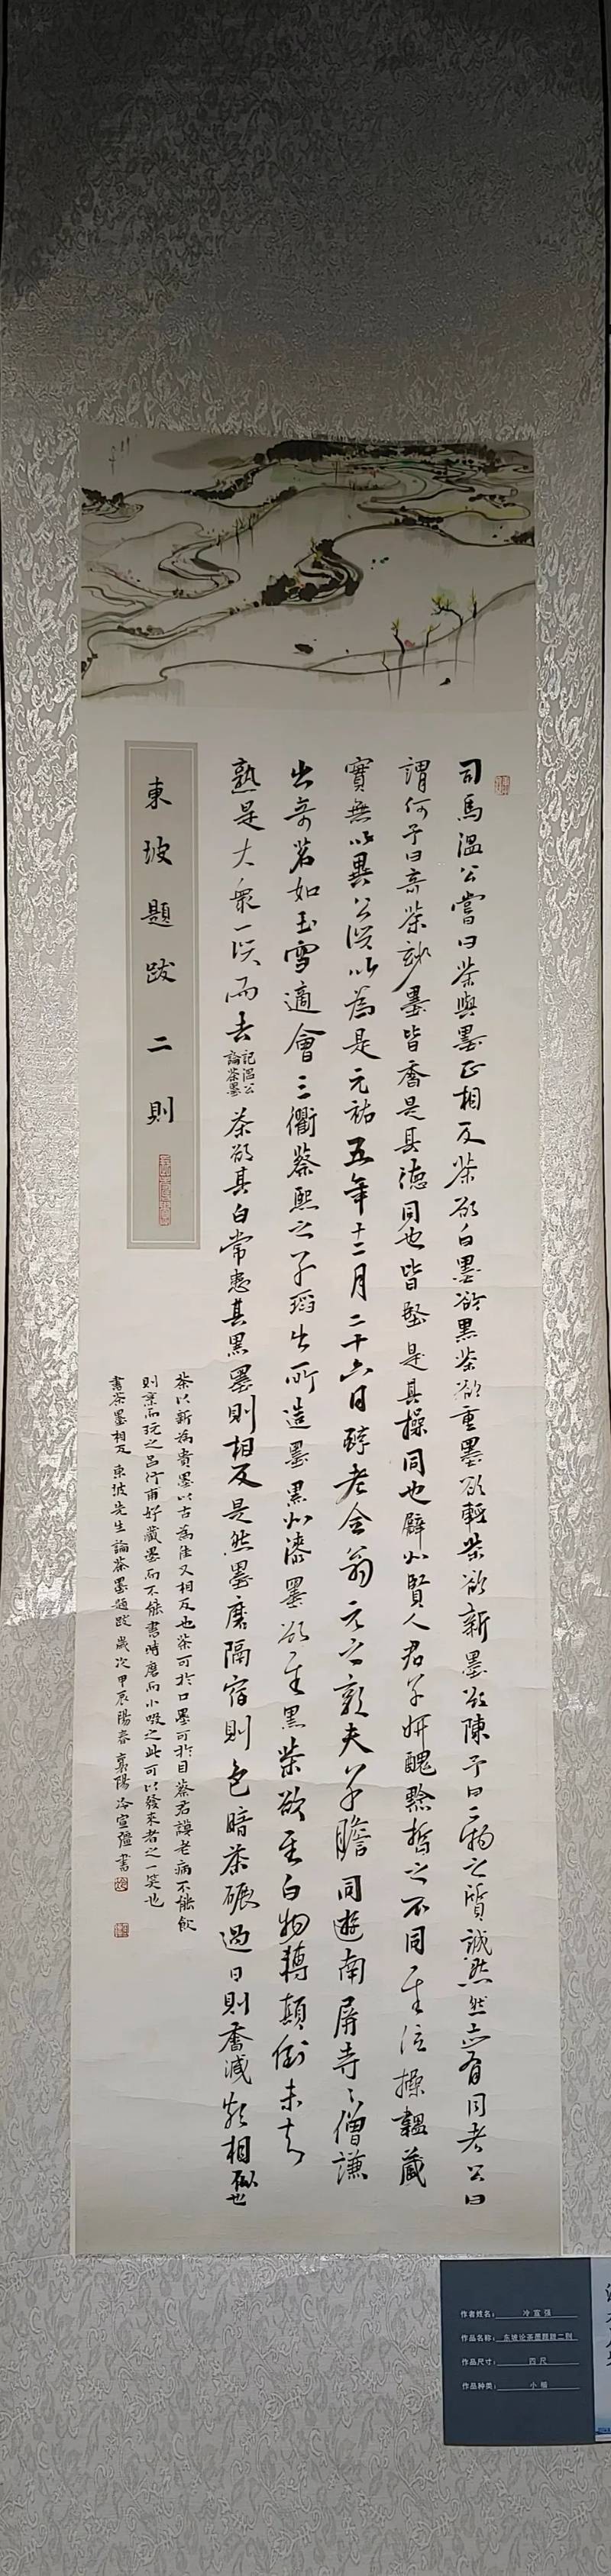 司馬溫公嘗曰茶與墨正相反茶欲白墨欲黑茶欲重墨欲輕茶欲新墨欲陳予曰二物之質誠然然亦有同者公曰
謂何予曰奇茶妙墨皆香是其德同也皆堅是其操同也譬如賢人君子妍醜黔皙之不同其德操韞藏
實無以異公笑以為是元祐五年十二月二十六日醇老全翁元之敦夫子瞻同遊南屏寺寺僧謙
出奇茗如玉雪適會三衢蔡熙之子瑫出所造墨黑如漆墨欲其黑茶欲其白物轉顛倒未知
孰是大眾一笑而去
記溫公
論茶墨
茶欲其白常患其黑墨則相反是然墨磨隔宿則色暗茶碾過日則香減頗相似也
茶以新為貴墨以古為佳又相反也茶可於口墨可於目蔡君謨老病不能飲
則烹而玩之呂行甫好藏墨而不能書時磨而小啜之此可以發來者之一笑也
書茶墨相反 東坡先生論茶墨題跋 歲次甲辰陽春 襄陽冷宣強書
東坡題跋二則
作者姓名：冷宣强
作品名称：东坡论茶墨题跋二则
作品尺寸：四尺
作品种类：小楷